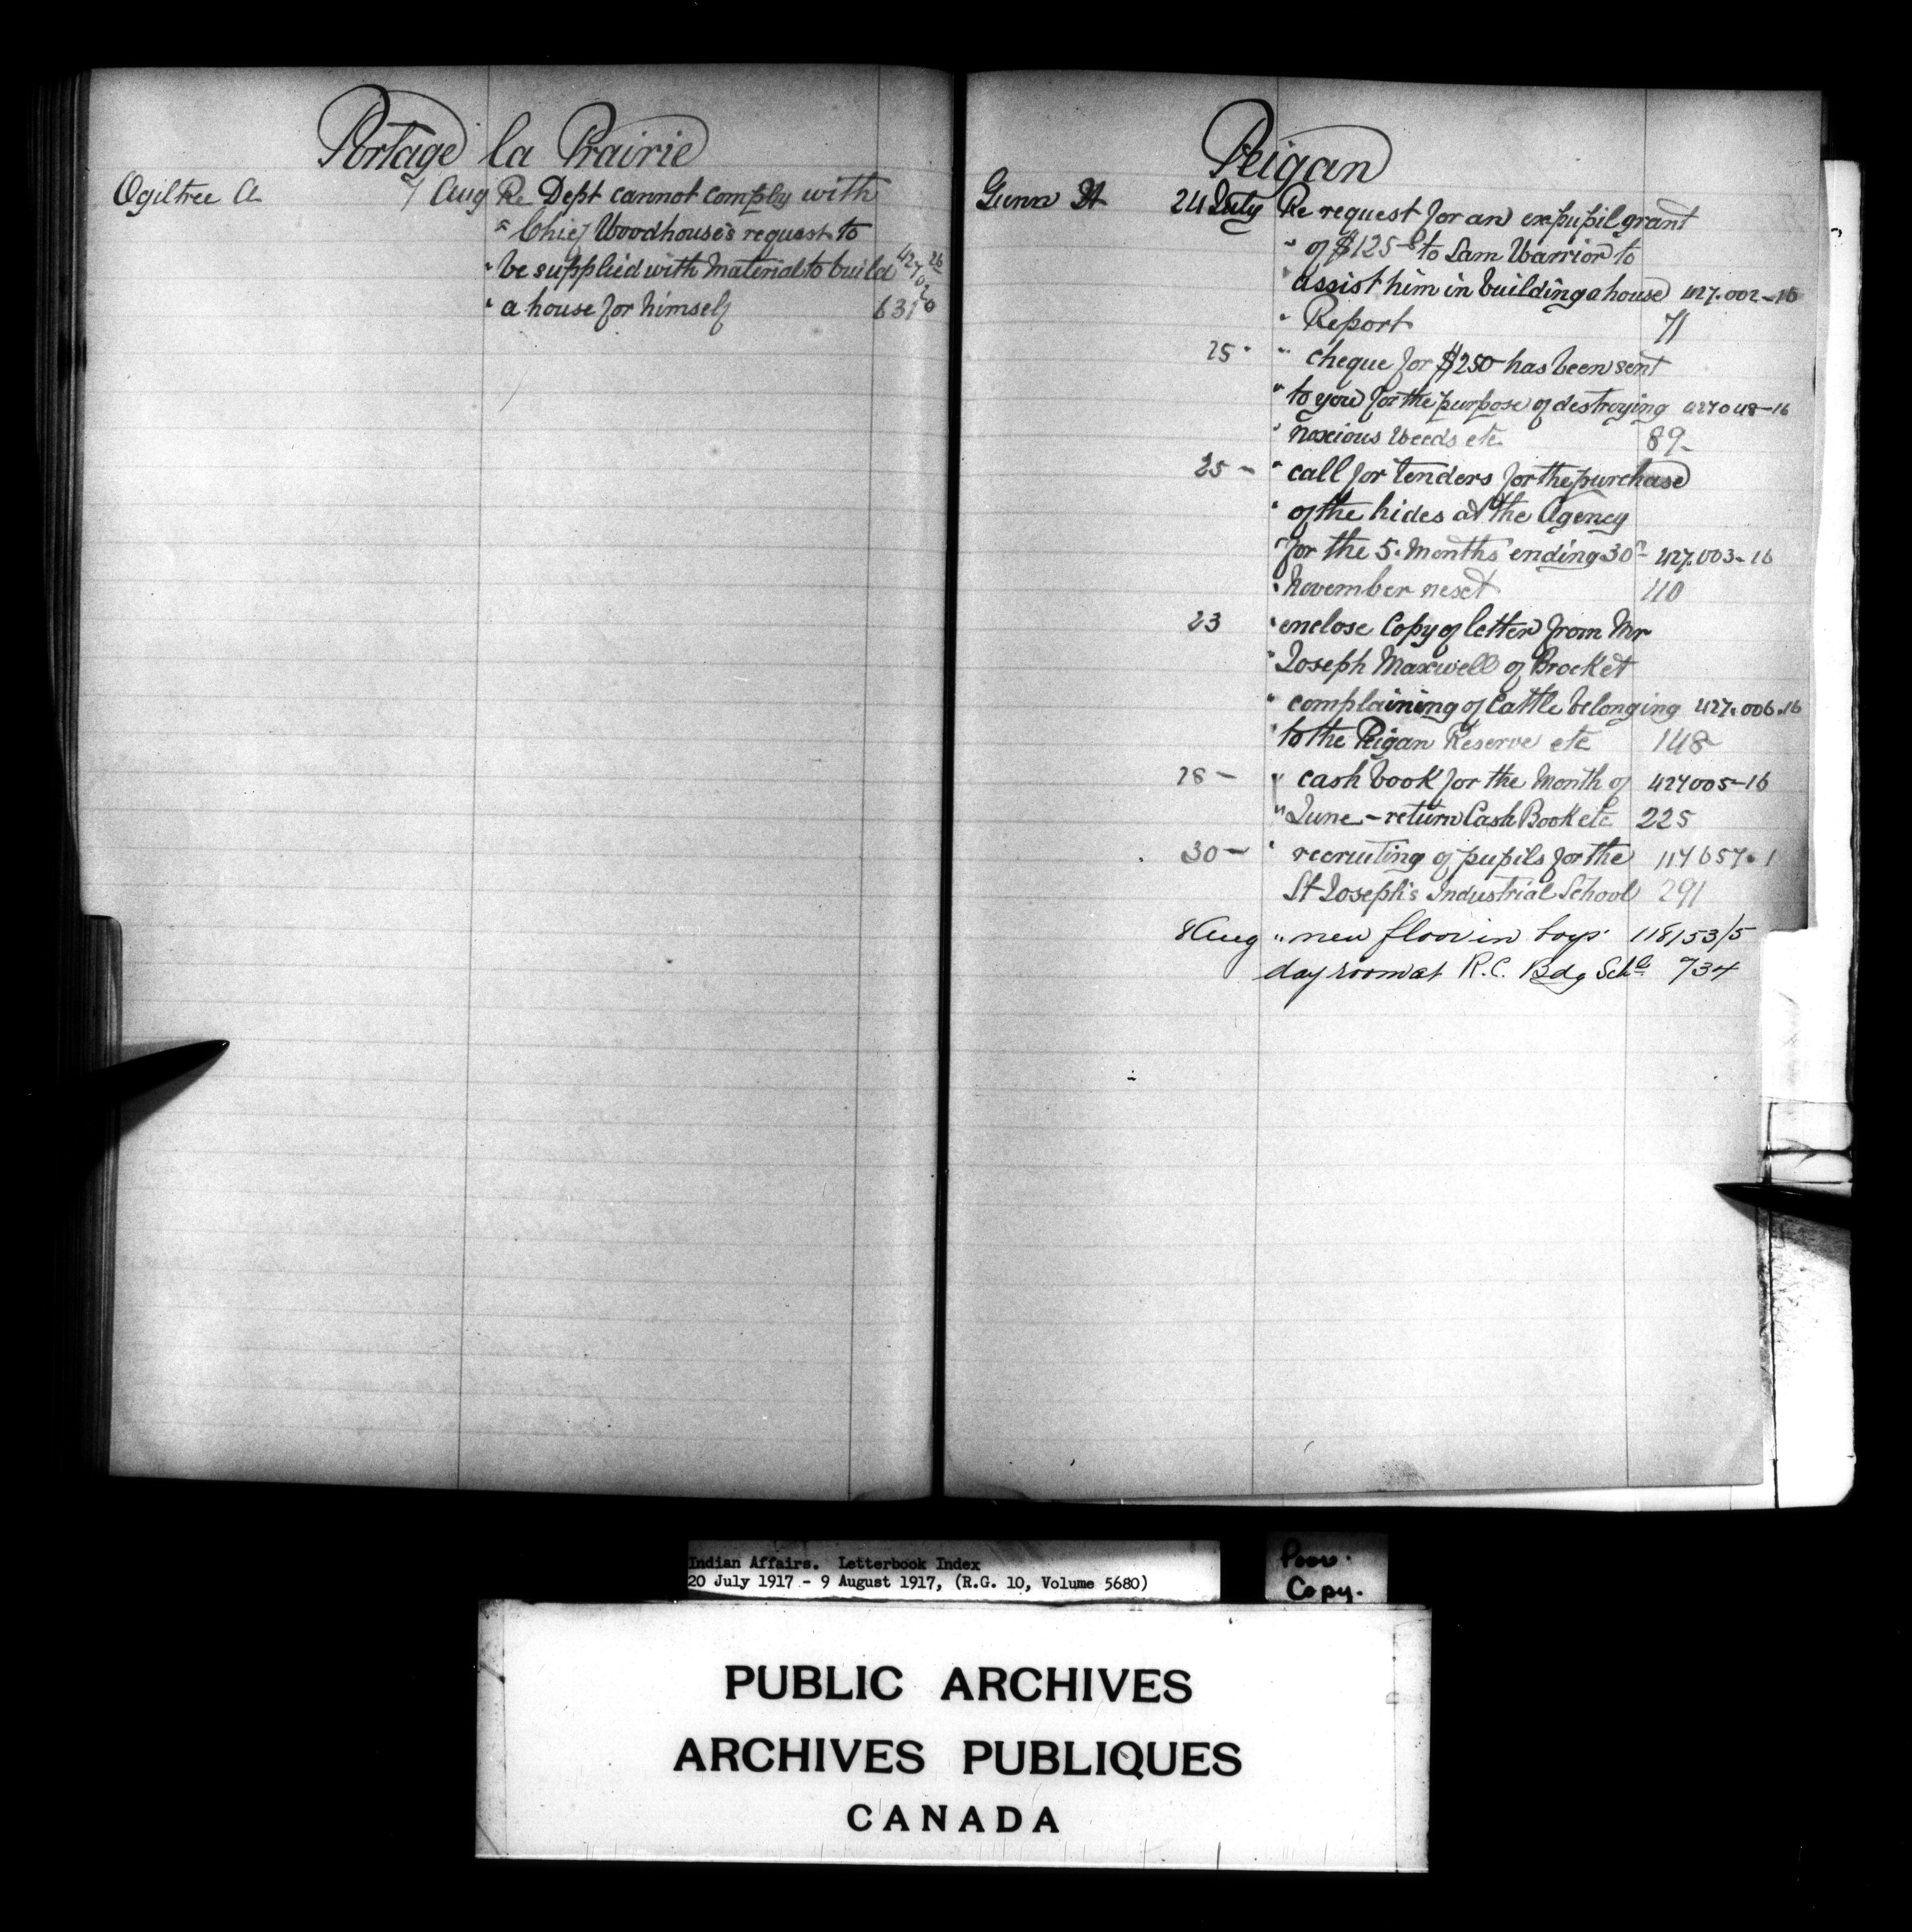 Portage la Prairie
Ogiltree A 7 Aug Re Dept cannot comply with
" Chief Woodhouse's request to
" be supplied with material to build
" a house for himself 631
Peigan
Gunn 24 July Re request for an expupil grant
" of $125 to Sam Warrior to
" assist him in building a house 427.002-16
" Report 71
25 " " cheque for $250 has been sent
" to you for the purpose of destroying 427048-16
" noxious weeds etc 89-
25 - " call for tenders for the purchase
" of the hides at the Agency
" for the 5 months ending 30th 427.003-16
" November next 110
23 " enclose Copy of letter from Mr
" Joseph Maxwell of Brocket
" complaining of Cattle belonging 427.006.16
" to the Peigan Reserve etc 148
28 - " cash book for the Month of 427005-16
" June - return Cash Book etc 225
30 - " recruiting of pupils for the 117657.1
St Joseph's Industrial School 291
8 Aug " new floor in boys' 118153/5
day room at R.C. Bdg Schl 734
Indian Affairs. Letterbook Index
20 July 1917 - 9 August 1917, (R.G. 10, Volume 5680)
Poor.
Copy.
PUBLIC ARCHIVES
ARCHIVES PUBLIQUES
CANADA